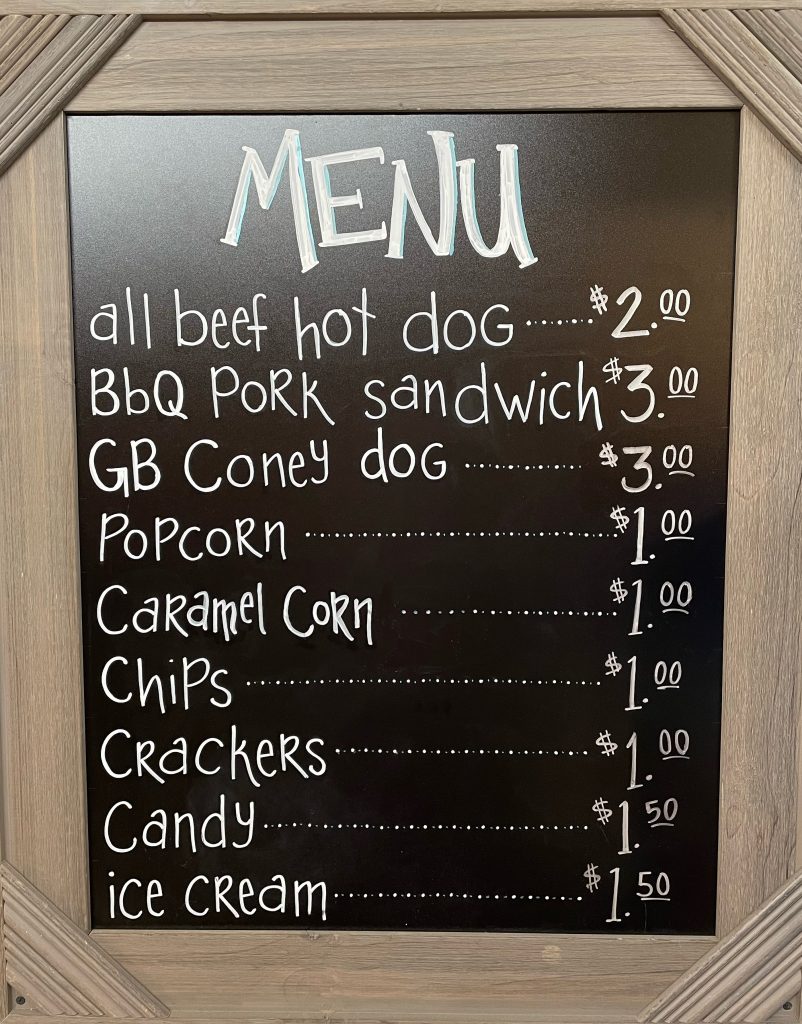 MENU
all beef hot dog ······ $2.00
BbQ Pork sandwich $3.00
GB Coney dog ············ $3.00
Popcorn ································ $1.00
Caramel Corn ······················ $1.00
Chips ···································· $1.00
Crackers ··························· $1.00
Candy ·································· $1.50
ice cream ·························· $1.50